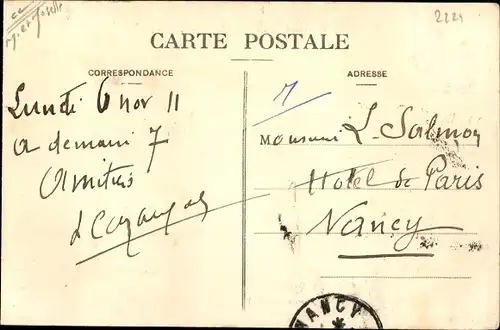 M. et Moselle
2221
CARTE POSTALE
CORRESPONDANCE
ADRESSE
Lundi 6 nov 11
a demain 7
Amitiés
Monsieur L. Salmon
Hotel de Paris
Nancy
NANCY